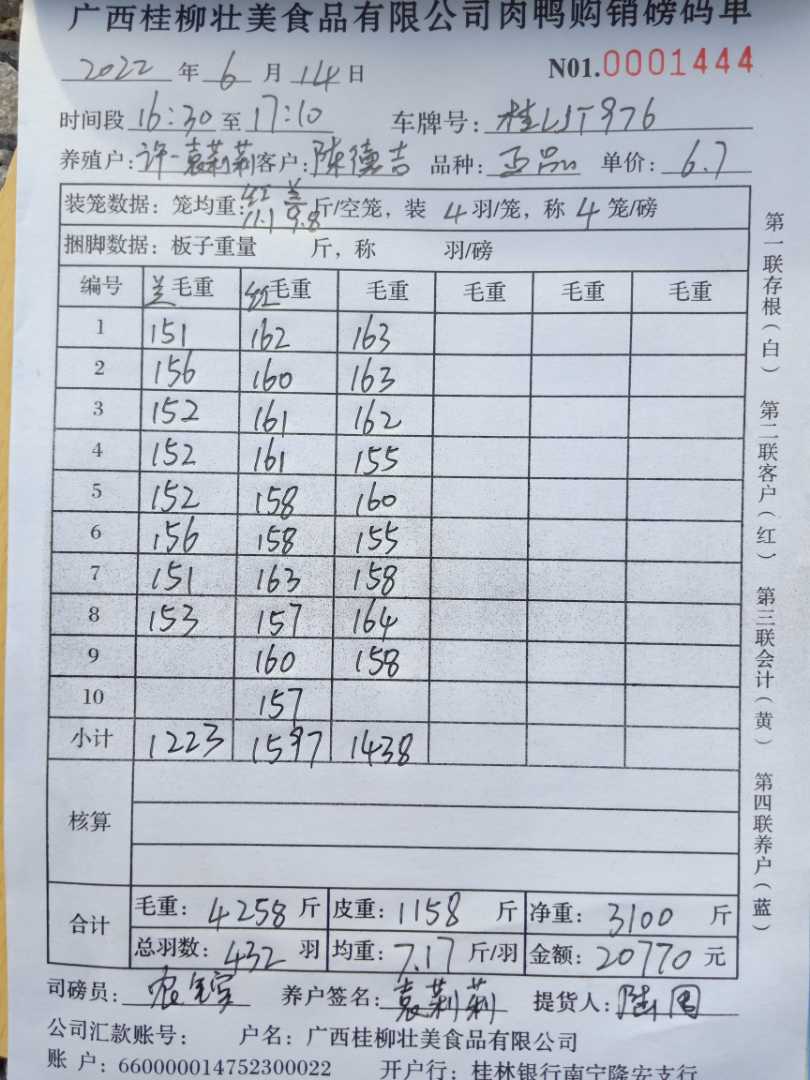 广西桂柳壮美食品有限公司肉鸭购销磅码单
2022 年 6 月 14 日 N01.0001444
时间段 16:30 至 17:10 车牌号: 桂LJT976
养殖户: 许一袁莉莉 客户: 陈德吉 品种: 正品 单价: 6.7
装笼数据: 笼均重: 红11.1 兰9.8 斤/空笼, 装 4 羽/笼, 称 4 笼/磅
捆脚数据: 板子重量 斤, 称 羽/磅
编号 兰毛重 红毛重 毛重 毛重 毛重 毛重
1 151 162 163
2 156 160 163
3 152 161 162
4 152 161 155
5 152 158 160
6 156 158 155
7 151 163 158
8 153 157 164
9 160 158
10 157
小计 1223 1597 1438
核算
合计 毛重: 4258 斤 皮重: 1158 斤 净重: 3100 斤
总羽数: 432 羽 均重: 7.17 斤/羽 金额: 20770 元
司磅员: 养户签名: 袁莉莉 提货人:
公司汇款账号: 户名: 广西桂柳壮美食品有限公司
账 户: 660000014752300022 开户行: 桂林银行南宁隆安支行
第一联存根(白) 第二联客户(红) 第三联会计(黄) 第四联养户(蓝)